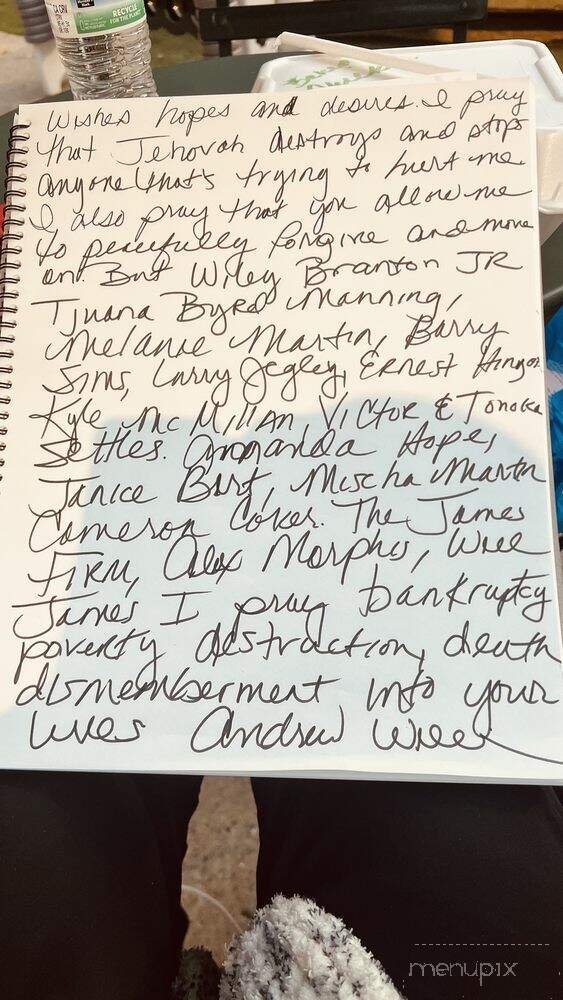 RECYCLE
Wishes hopes and desires. I pray
that Jehovah destroys and stops
anyone that's trying to hurt me.
I also pray that you allow me
to peacefully forgive and move
on. But Wiley Branton JR
Tjuana Byrd Manning,
Melanie Martin, Barry
Sims, Larry Jegley, Ernest
Kyle McMillan, Victor & Tonoka
Settles. Amanda Hope,
Janice Burt, Mischa Martin
Cameron Coker. The James
FIRM, Alex Morphis, Will
James I pray bankruptcy
poverty destruction, death
dismemberment, into your
lives Andrew
menupix